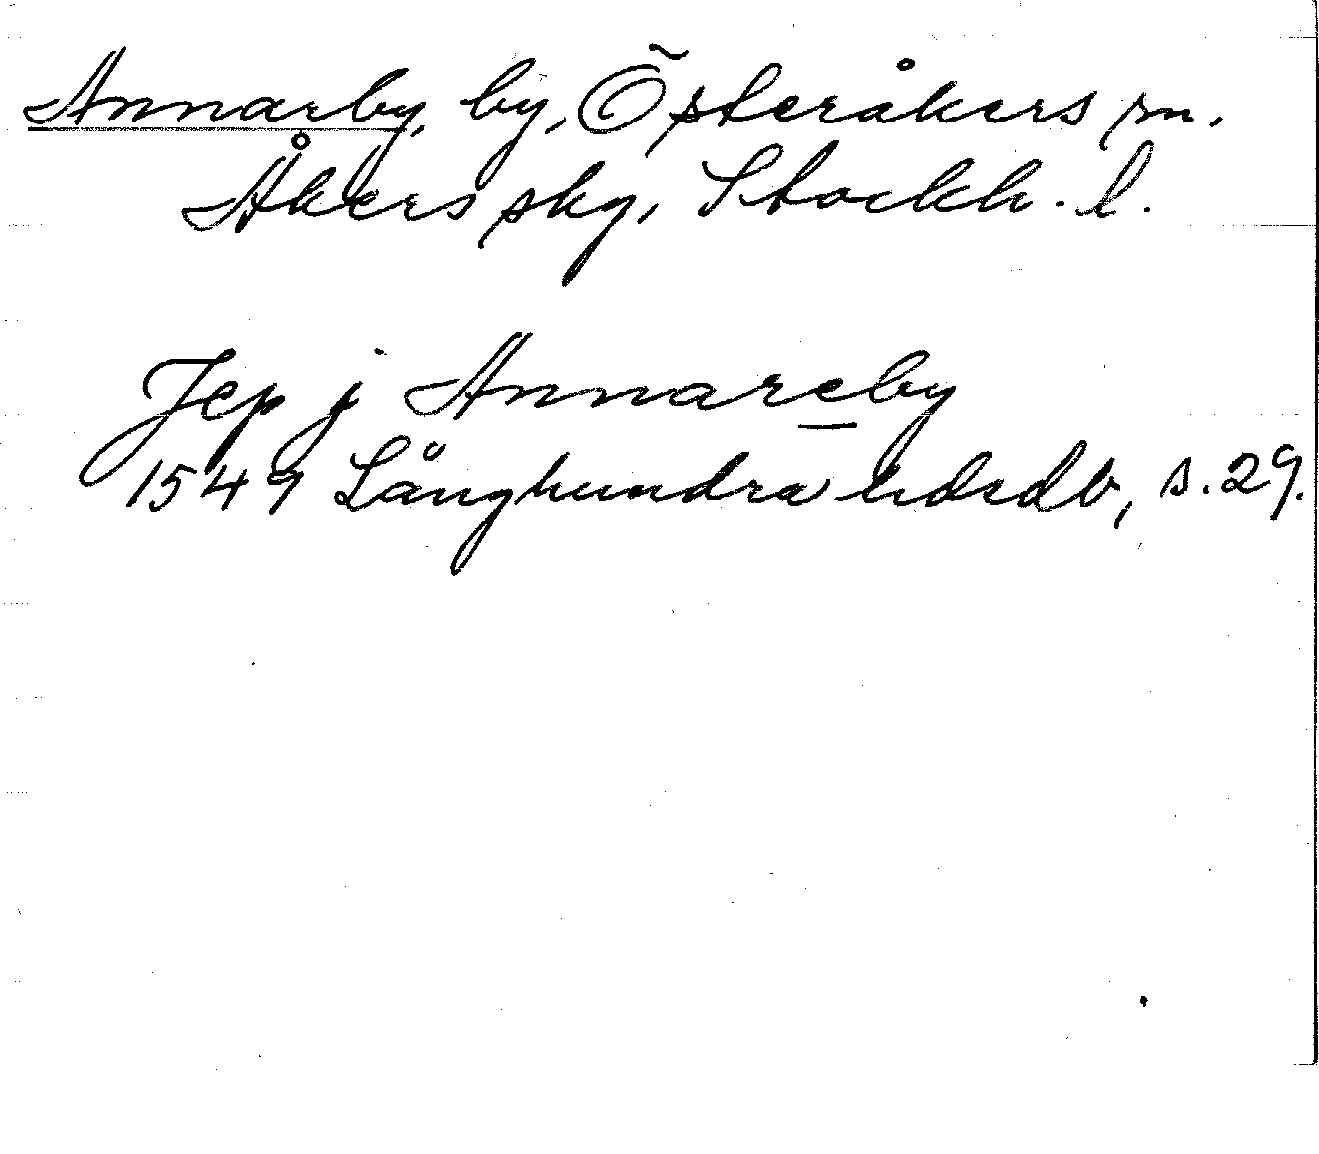 Annarby, by, Österåkers sn.
Åkers skg, Stockh. l.
Jep j Annareby
1549 Långhundra hdsdb, s. 29.